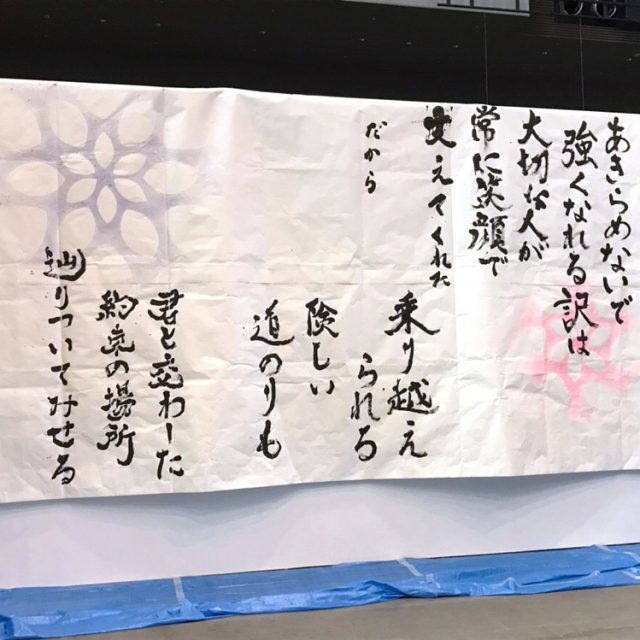 あきらめないで
強くなれる訳は
大切な人が
常に笑顔で
支えてくれた
だから
乗り越え
られる
険しい
道のりも
君と交わした
約束の場所
辿りついてみせる